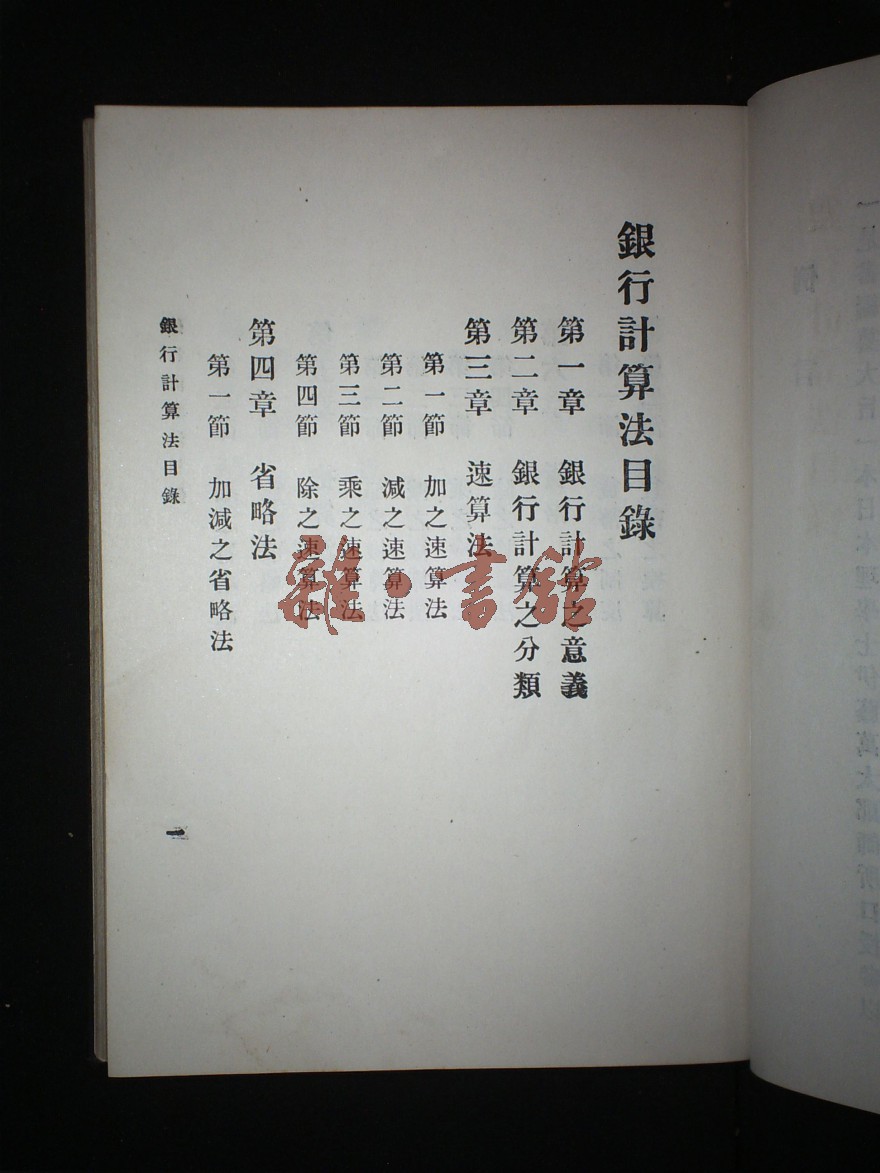 銀行計算法目錄
第一章 銀行計算之意義
第二章 銀行計算之分類
第三章 速算法
第一節 加之速算法
第二節 減之速算法
第三節 乘之速算法
第四節 除之速算法
第四章 省略法
第一節 加減之省略法
銀行計算法目錄
一
雜·書館